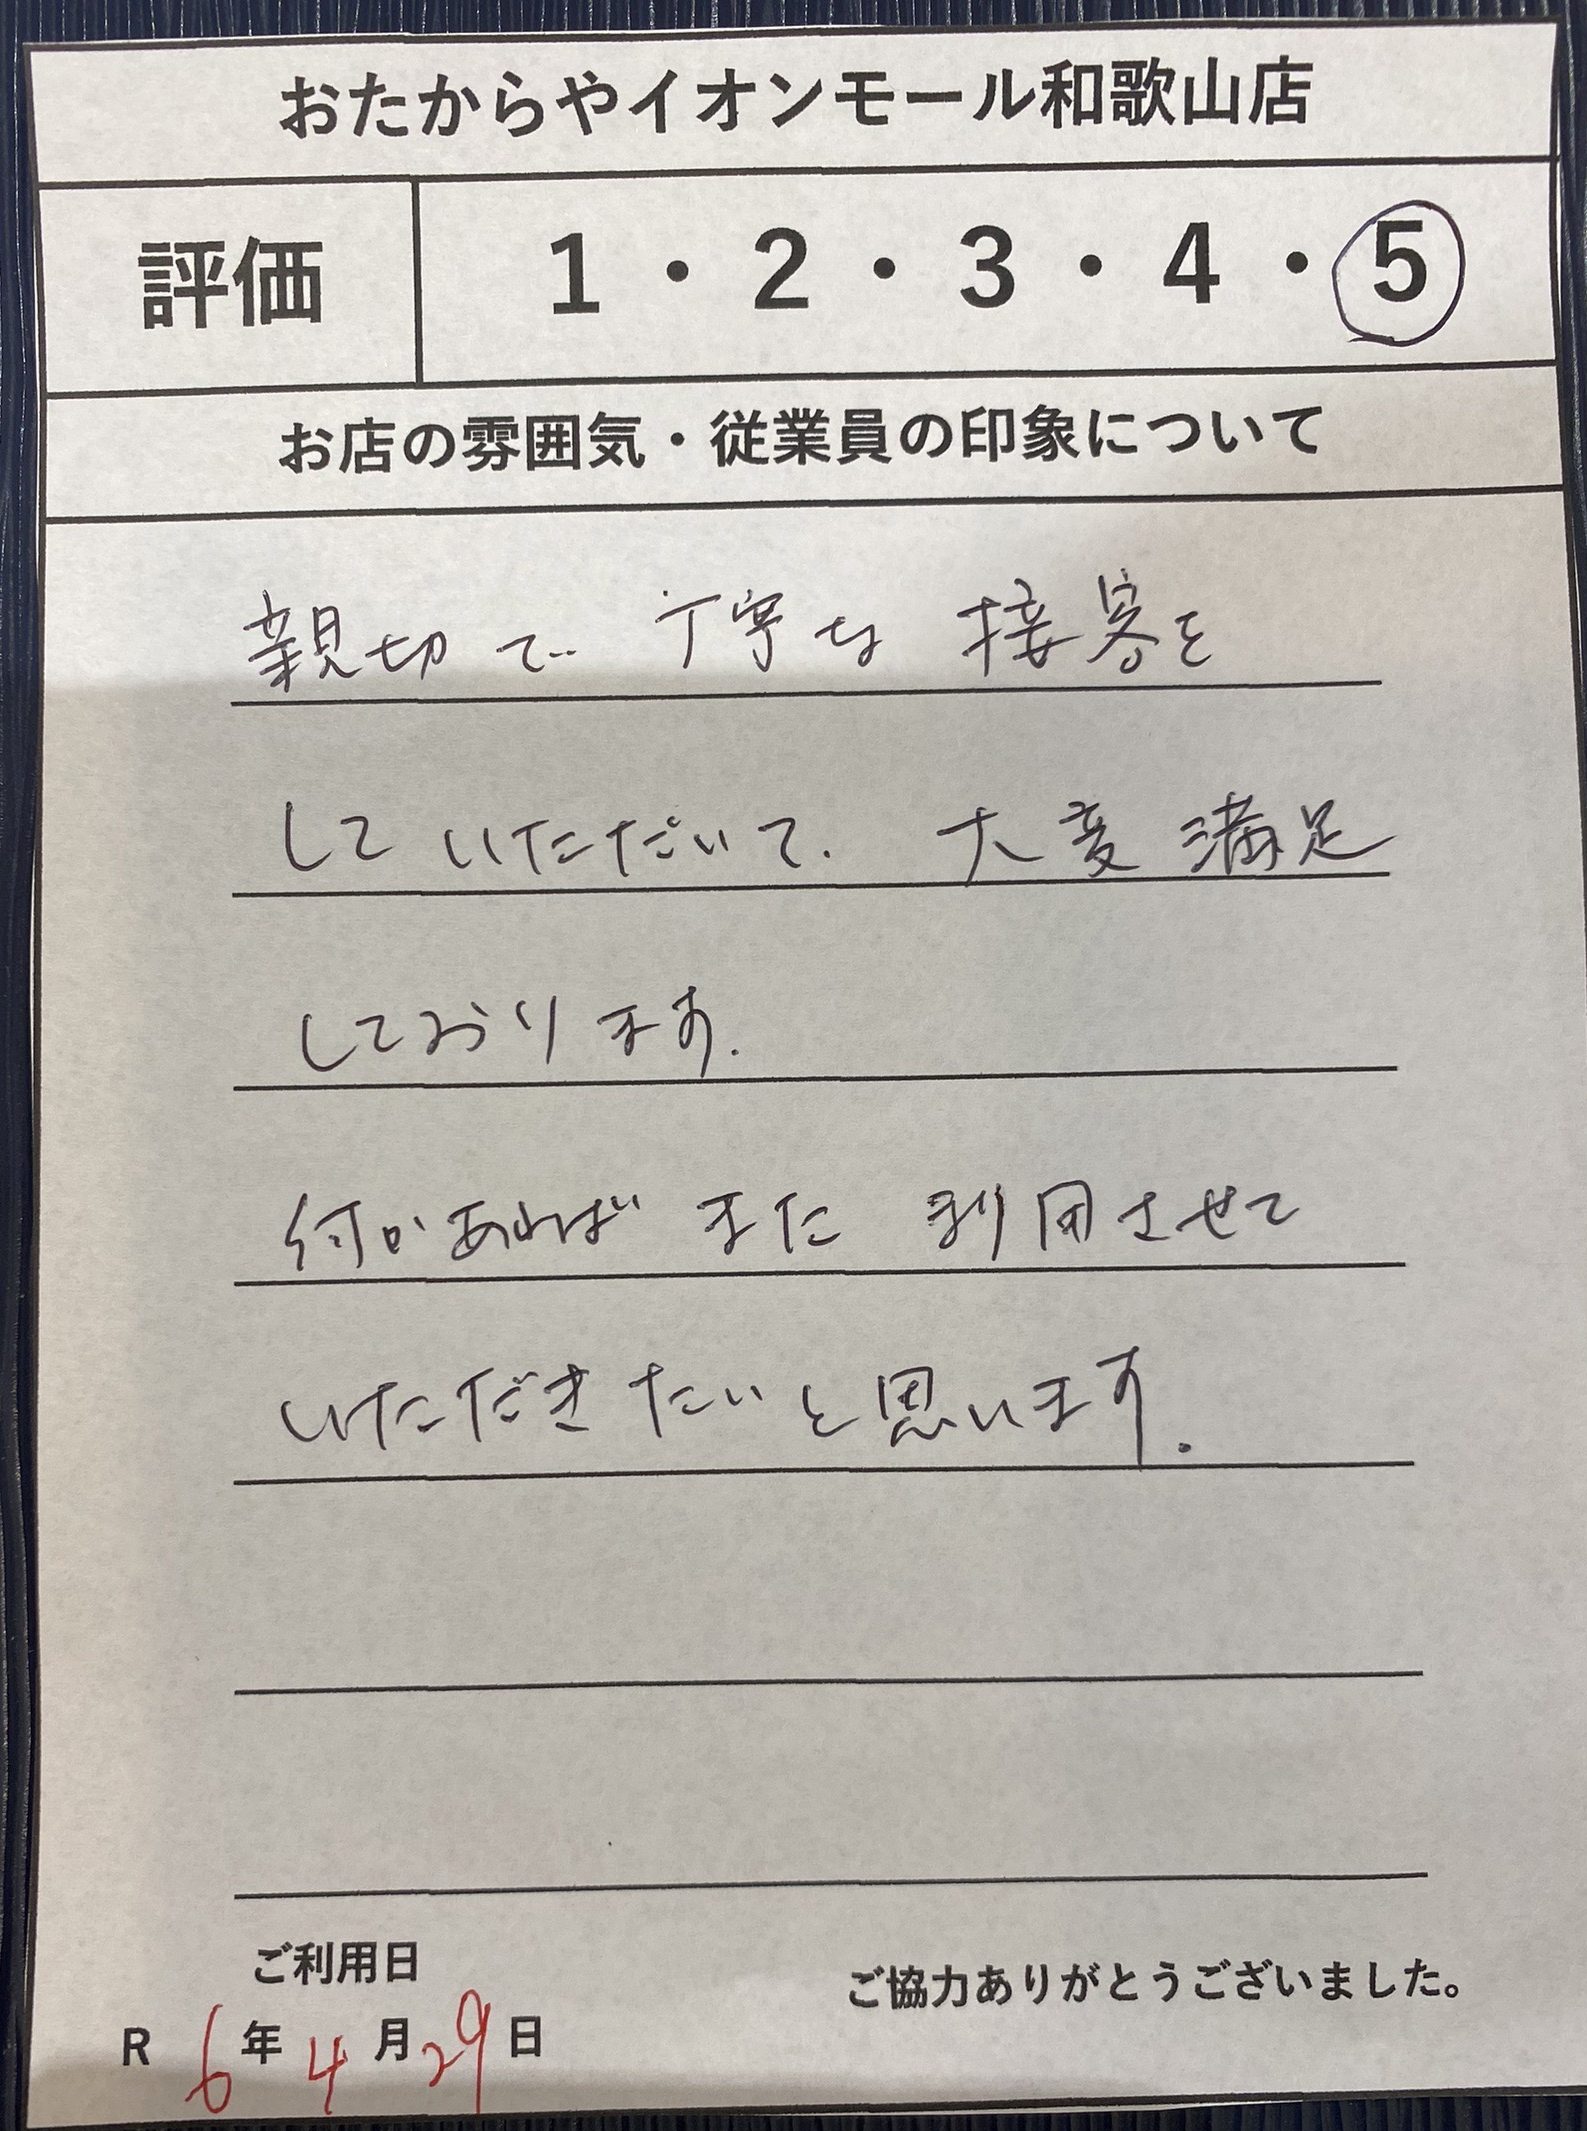 おたからやイオンモール和歌山店
評価 1・2・3・4・5
お店の雰囲気・従業員の印象について
親切で丁寧な接客を
していただいて、大変満足
しております。
何かあればまた利用させて
いただきたいと思います。
ご利用日
ご協力ありがとうございました。
R 6年4月29日